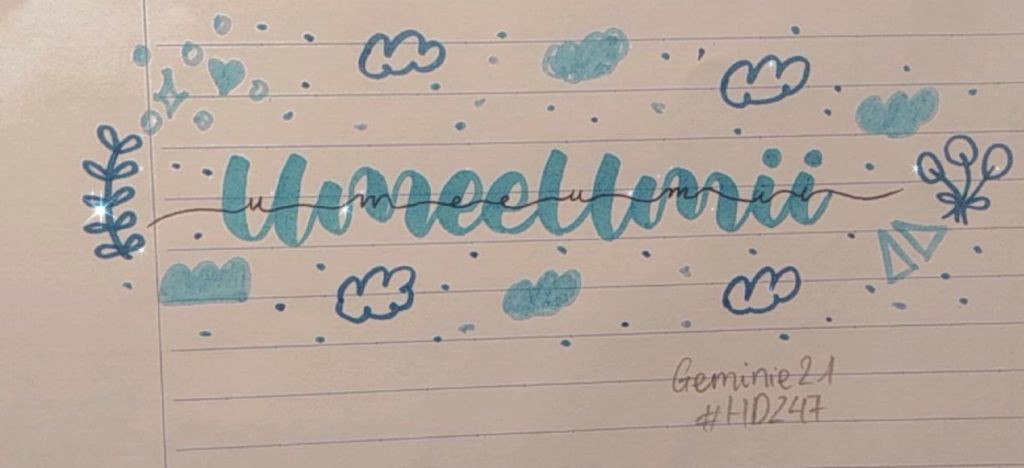 UmeeUmii
umeeumii
Geminie21
#HD247